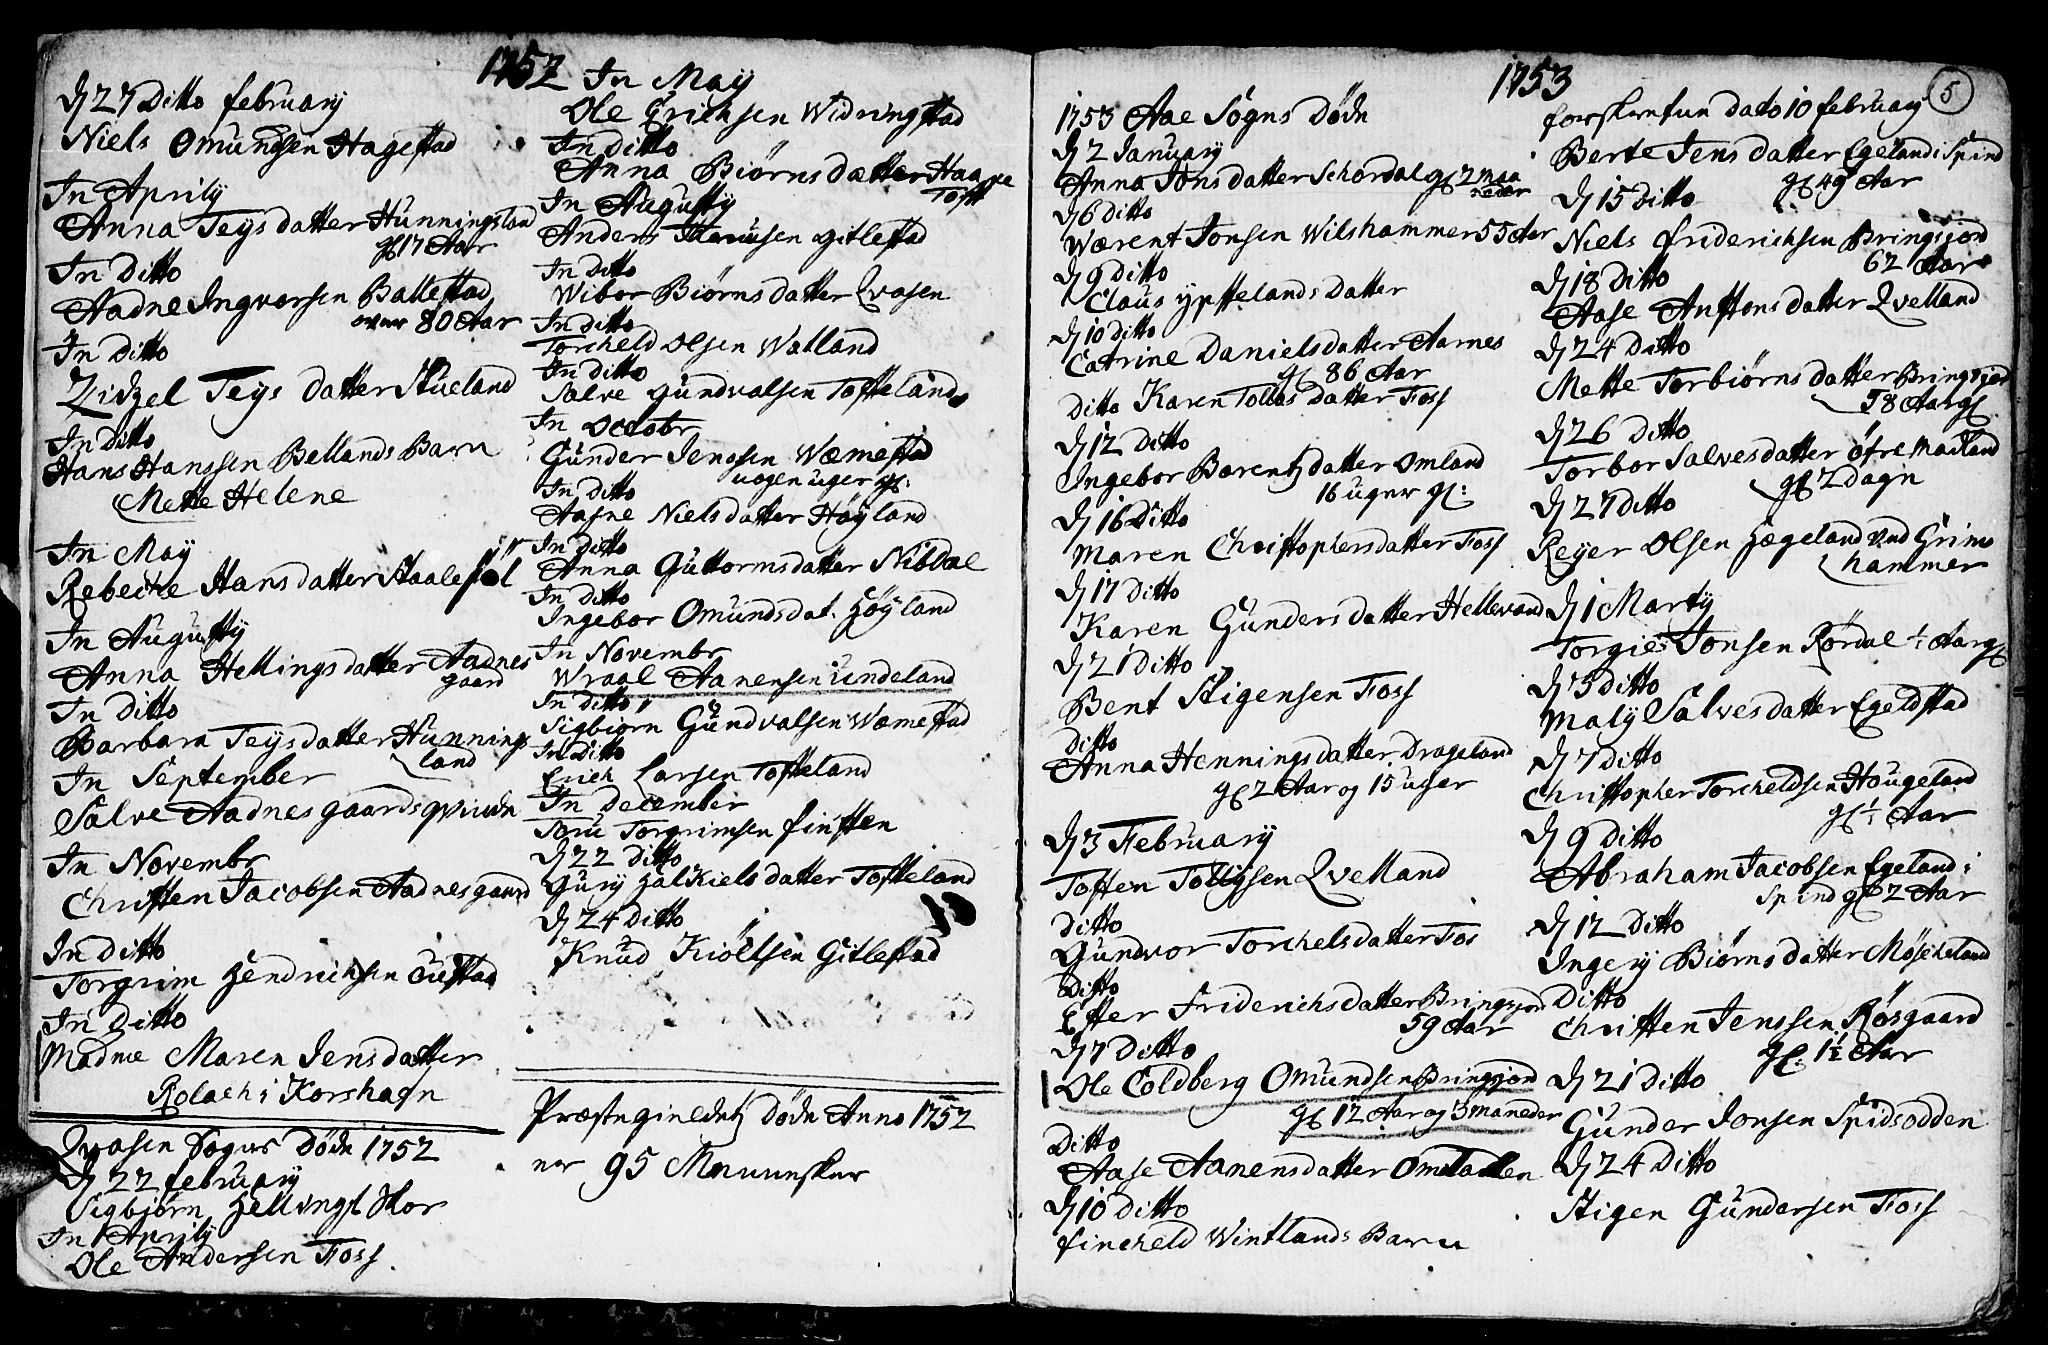 1752
dj 27 Ditto february
Niels Omundsen Hagestad
In Aprily
Anna Teysdatter Hunningsland
gl 17 Aar
In Ditto
Aadne Ingvorsen Ballestad
over 80 Aar
In Ditto
Zidzel Teys datter Stueland
In Ditto
Hans Hanssen Bellands Barn
Mette Helene
In May
Rebecke Hansdatter Staalesöl
In Augusty
Anna Hellingsdatter Aadnes
gaard
In Ditto
Barbara Teysdatter Hunnings
land
In September
Salve Aadnesgaards qvinde
In Novembr
Christen Jacobsen Aadnesgaard
In Ditto
Torgrim Hendrichsen Custad
In Ditto
Madme Maren Jensdatter
Rolach i Korshagn
Qvasen Sogns Döde 1752
dj 22 february
Sigbjørn Hellings Skor
In Aprily
Ole Andersen Foss
In May
Ole Erichsen Widringstad
In Ditto
Anna Biörnsdatter Haape
Toft
In Augusty
Anders gitlestad
In Ditto
Wibor Biørnsdatter Qvasen
In Ditto
Torcheld Olsen Walland
In Ditto
Salve gundvalsen Tofteland
In Octobr
Gunder Jenssen Wæmestad
nogen uger gl:
In Ditto
Aasne Nielsdatter Höyland
In Ditto
Anna Guttormsdatter Nibdal
In Ditto
Ingebor Omundsdat: Höyland
In Novembr
Wraal Aanensen Undeland
In Ditto
Sigbiorn Gundvalsen Wæmestad
In Ditto
Erich Larsen Tofteland
In December
Toru Torgrimsen finsten
dj 22 Ditto
Gury Halkielsdatter Tofteland
dj 24 Ditto
Knud Kiöllsen Gitlestad
Præstegieldets Döde Anno 1752
ner 95 Mennisker
1753
5
1753 Aae Sogns Döde
dj 2 January
Anna Jonsdatter Schordal gl 2 maa
neder
dj 6 Ditto
Wærent Jonsen Wilshammer 55 Aar
dj 9 Ditto
Claus ypstelands Datter
dj 10 Ditto
Catrine Danielsdatter Aarnes
gl 86 Aar
Ditto Karen Tollas datter Foss
dj 12 Ditto
Ingebor Barentz datter Omland
16 uger gl:
dj 16 Ditto
Maren Christophersdatter Foss
dj 17 Ditto
Karen Gundersdatter Hellevand
dj 21 Ditto
Bent Stigensen Foss
Ditto
Anna Henningsdatter Drageland
gl 2 Aar og 15 uger
dj 3 February
Tosten Tollysen Qvelland
Ditto
Gundvor Torchelsdatter Fos
Ditto
Ester Friderichsdatter Bringsjord
59 Aar
dj 7 Ditto
Ole Coldberg Omundsen Bringsjord
gl 12 Aar og 3 Maneder
Ditto
Aase Aanensdatter Omdallen
dj 10 Ditto
fincheld Wintlands Barn
dato 10 february
Berte Jensdatter Egeland i Spind
gl 49 Aar
dj 15 Ditto
Niels friderichsen Bringsjord
62 Aar
dj 18 Ditto
Aase Anstonsdatter Qvelland
dj 24 Ditto
Mette Torbiörnsdatter Bringsjor
58 Aar gl
dj 26 Ditto
Torbor Salvesdatter öfre Madland
gl 2 Dage
dj 27 Ditto
Reyer Olsen Hægeland ved Grims
hammer
dj 1 Marty
Torgies Jonsen Rördal ½ Aar gl
dj 3 Ditto
Maly Salvesdatter Egeldstad
dj 7 Ditto
Christopher Torcheldsen Hougeland
gl ½ Aar
dj 9 Ditto
Abraham Jacobsen Egeland i
Spind gl 2 Aar
dj 12 Ditto
Ingery Biørnsdatter Møscheland
Ditto
Christen Jenssen Rösgaard
gl: 1½ Aar
dj 21 Ditto
Gunder Jonsen Spidsodden
dj 24 Ditto
Stigen Gundersen Foss